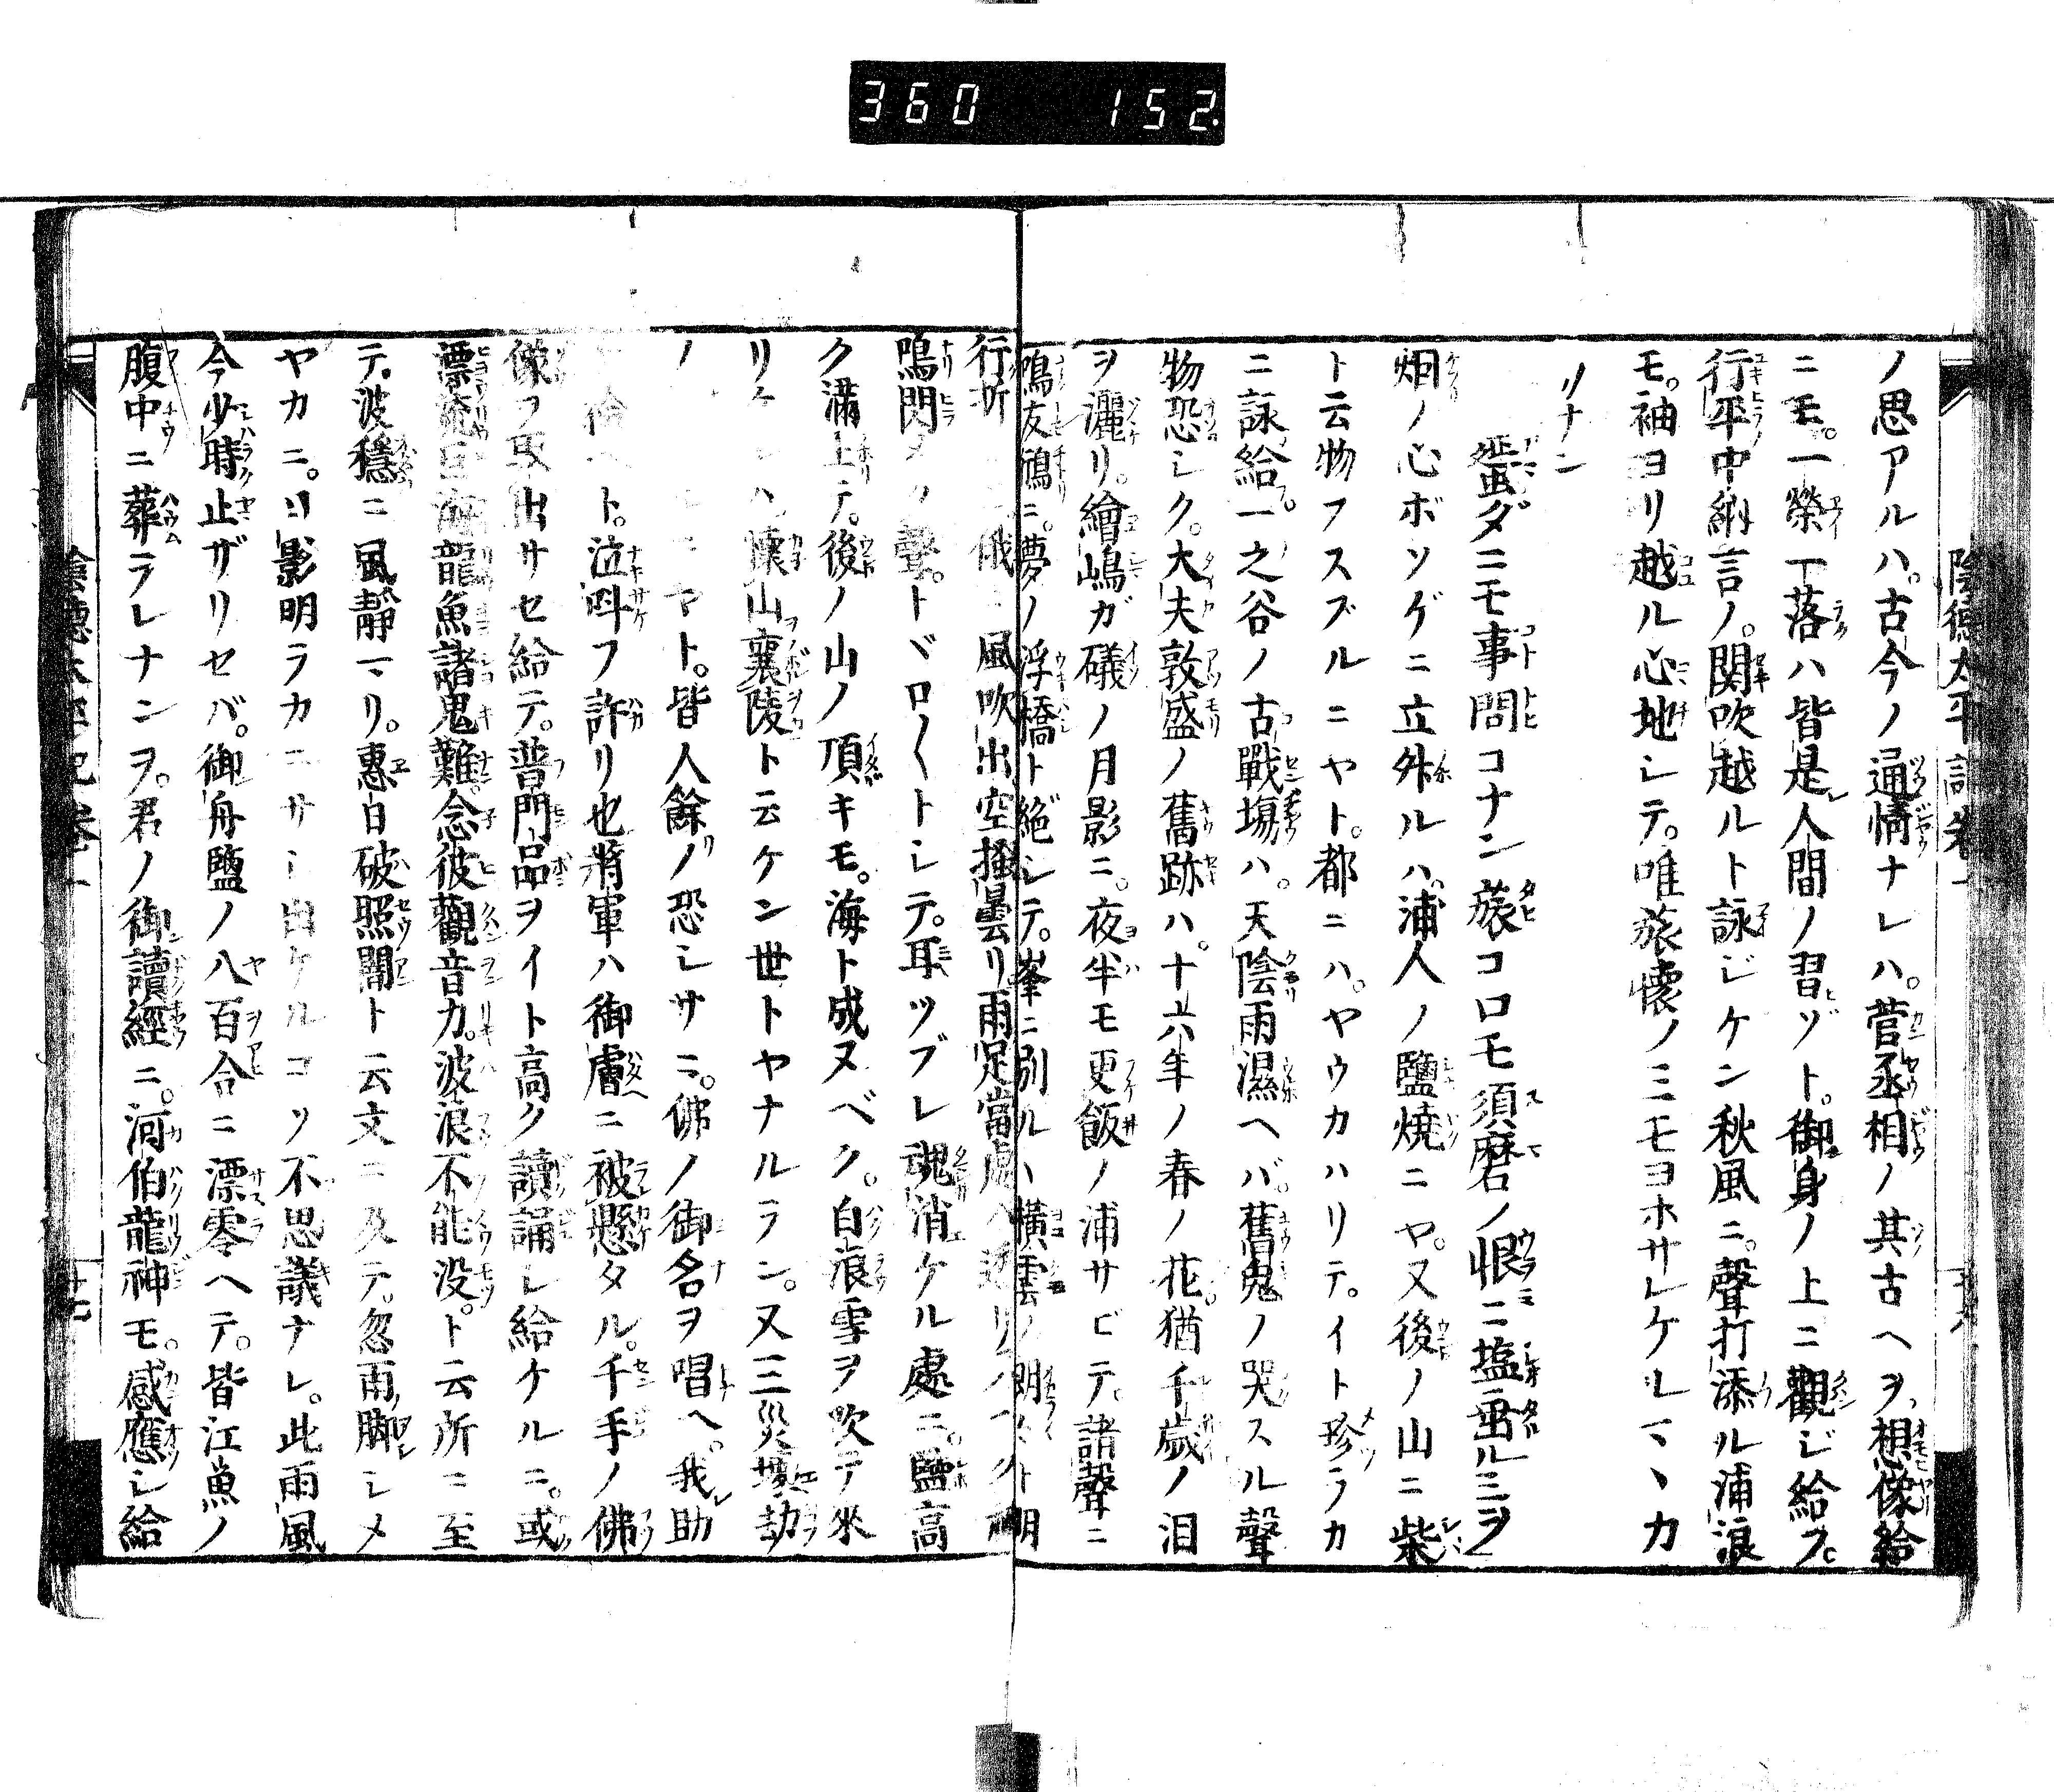 360 152
陰徳太平記巻一
ノ思アルハ。古今ノ通情ナレハ。菅丞相ノ其古ヘヲ、想像給
ニモ。一榮一落ハ皆是人間ノ習ゾト。御身ノ上ニ觀ジ給フ。
行平中納言ノ。関吹越ルト詠ジケン秋風ニ。聲打添ル浦浪
モ。袖ヨリ越ル心地シテ。唯旅懷ノミモヨホサレケルマヽカ
リナン
蜑ダニモ事問コナン旅コロモ須磨ノ恨ニ塩垂ルミヲ
烟ノ心ボソゲニ立外ルハ、浦人ノ鹽焼ニヤ。又後ノ山ニ柴
ト云物フスブルニヤト。都ニハ。ヤウカハリテ。イト珍ラカ
ニ詠給フ。一之谷ノ古戰場ハ。天陰雨濕ヘバ。舊鬼ノ哭スル聲
物恐シク。大夫敦盛ノ舊跡ハ。十六年ノ春ノ花。猶千歳ノ泪
ヲ灑リ。繪嶋ガ礒ノ月影ニ。夜半モ更飯ノ浦サビテ。諸聲ニ
鳴友鵆ニ。夢ノ浮橋ト絶シテ。峯ニ別ルヽ横雲ノ明
行折 俄ニ風吹出空掻曇リ雨足當處
鳴閃メク聲。トヾロ〱トシテ。耳ツブレ魂消ケル處ニ。鹽高
ク滿上テ。後ノ山ノ頂キモ。海ト成ヌベク。白浪雪ヲ吹テ來
リケ ハ懷山襄陵ト云ケン世トヤナルラン。又三災壞劫
ノ ニヤト。皆人餘リノ恐シサニ。佛ノ御名ヲ唱ヘ。我助
ヘト。泣呌フ許リ也將軍ハ御膚ニ被懸タル。千手ノ佛
像ヲ取出サセ給テ。普門品ヲイト高ク讀誦シ給ケルニ。或
漂流巨海龍魚諸鬼難。念彼觀音力。波浪不能没。ト云所ニ至
テ。波穩ニ風靜マリ。惠日破照闇ト云文ニ及テ。忽雨脚シメ
ヤカニ。日影明ラカニサシ出ケルコソ不思議ナレ。此雨風
今少時止ザリセバ。御舟鹽ノ八百合ニ漂零ヘテ。皆江魚ノ
腹中ニ葬ラレナンヲ。君ノ御讀經ニ。河伯龍神モ。感應シ給
陰徳太平記巻一
廿七